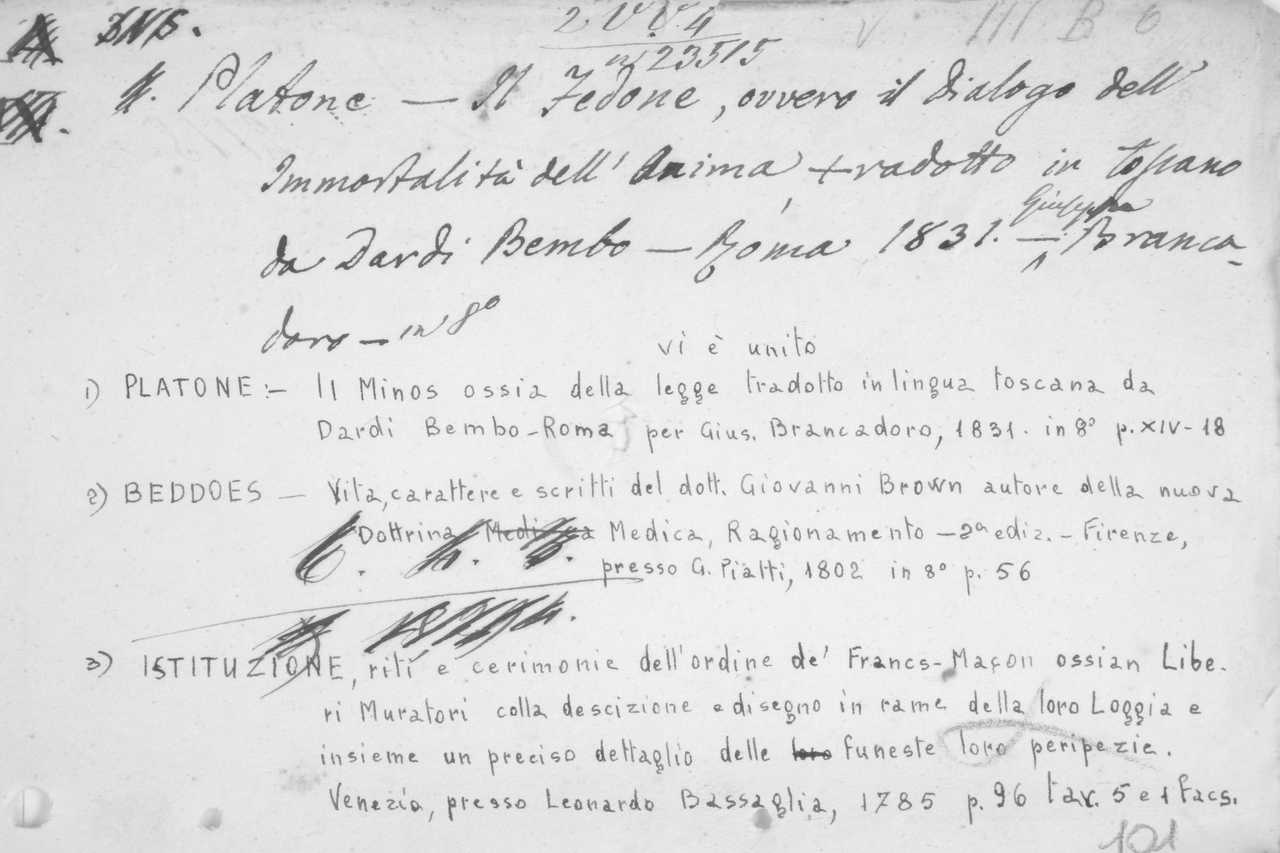 2 V. V. 4
23515
III B 6
Platone — Il Fedone, ovvero il Dialogo dell'
Immortalità dell' Anima tradotto in toscano
Giuseppe
da Dardi Bembo — Roma 1831. — Branca-
doro — in 8º
vi è unito
1) PLATONE :- Il Minos ossia della legge tradotto in lingua toscana da
Dardi Bembo - Roma per Gius. Brancadoro, 1831. in 8º p. XIV - 18
2) BEDDOES — Vita, carattere e scritti del dott. Giovanni Brown autore della nuova
Dottrina Medica, Ragionamento — 2ª ediz. - Firenze,
presso G. Piatti, 1802 in 8º p. 56
3) ISTITUZIONE, riti e cerimonie dell'ordine de' Francs-Maçon ossian Libe-
ri Muratori colla descizione e disegno in rame della loro Loggia e
insieme un preciso dettaglio delle loro funeste loro peripezie.
Venezia, presso Leonardo Bassaglia, 1785 p. 96 tav. 5 e 1 facs.
101